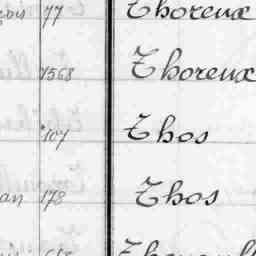 77 Thoreux
1568 Thoreux
107 Thos
an 178 Thos